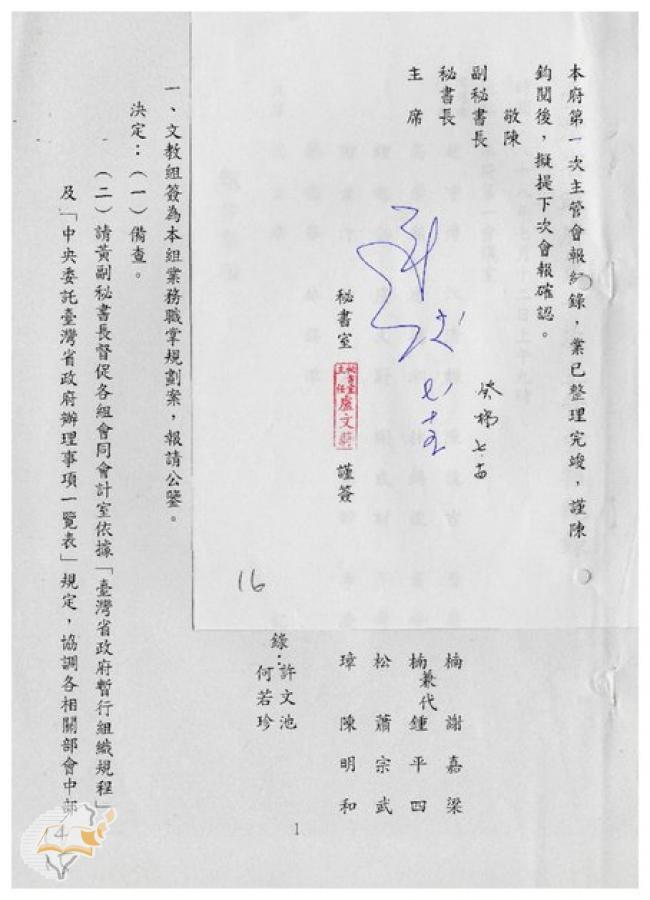 本府第一次主管會報紀錄，業已整理完竣，謹陳
鈞閱後，擬提下次會報確認。
敬陳
副秘書長
秘書長
主席
秘書室
秘書室主任盧文
謹簽
16
楠 謝嘉梁
楠兼代 鍾平四
松 蕭宗武
璋 陳明和
錄：許文池
何若珍
一、文教組簽為本組業務職掌規劃案，報請公鑒。
決定：(一)備查。
(二)請黃副秘書長督促各組會同會計室依據「臺灣省政府暫行組織規程」
及「中央委託臺灣省政府辦理事項一覽表」規定，協調各相關部會中部
1
4